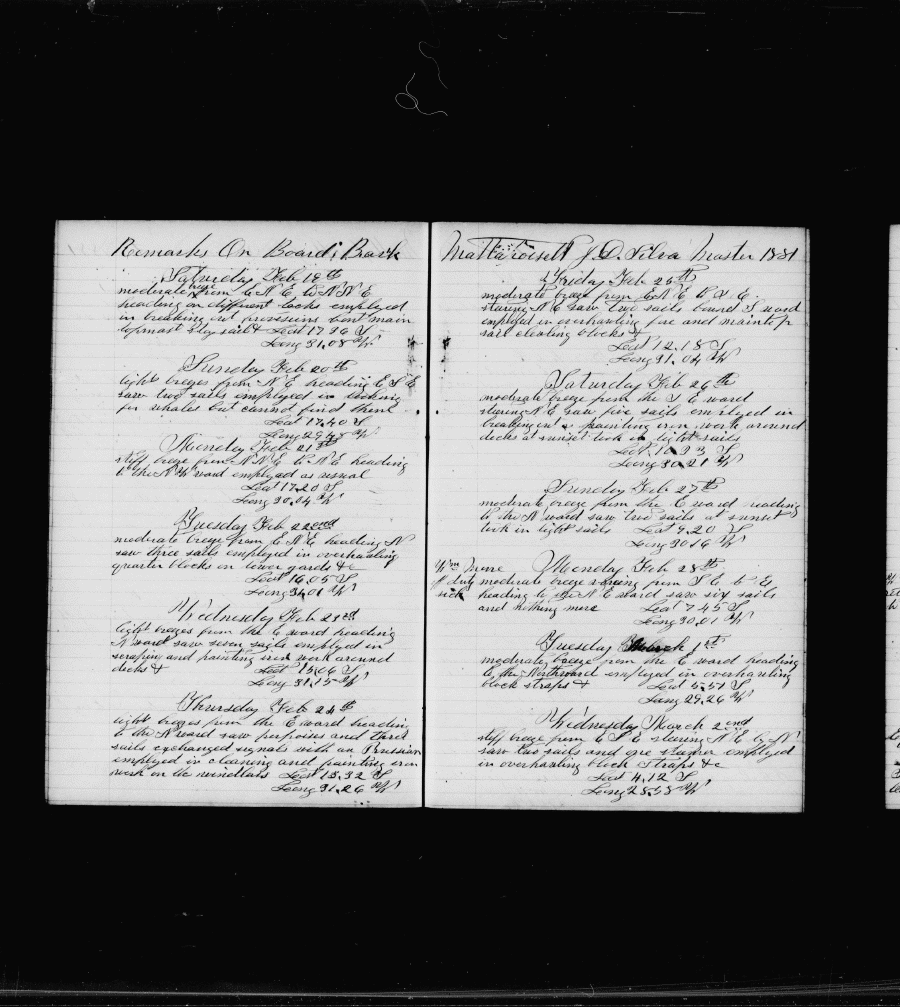 Remarks On Board Bark
Saturday Feb 19th
moderate breeze from E N E to N N E
heading on different tacks employed
in breaking out provisions bent main
topmast stay sail & Lat 17.36 S
Long 31.08 W
Sunday Feb 20th
light breezes from N E heading E S E
saw two sails employed in looking
for whales but cannot find them
Lat 17.40 S
Long 29.48 W
Monday Feb 21st
stiff breeze from N N E to N E heading
to the N W ward employed as usual
Lat 17.20 S
Long 30.04 W
Tuesday Feb 22end
moderate breeze from E N E heading N
saw three sails employed in overhauling
quarter blocks on lower yards &c
Lat 16.05 S
Long 31.01 W
Wednesday Feb 23rd
light breezes from the E ward heading
N ward saw seven sails employed in
scraping and painting iron work around
decks & Lat 15.06 S
Long 31.15 W
Thursday Feb 24th
light breezes from the E ward heading
to the N ward saw porpoises and three
sails exchanged signals with an Prussian
employed in cleaning and painting iron
work on the windlass Lat 13.32 S
Long 31.26 W
Mattapoisett J. D. Silva Master 1881
Friday Feb 25th
moderate breeze from E N E to E
stearing N E saw two sails bound S ward
employed in overhauling fore and maintop
sail clewling blocks &
Lat 12.18 S
Long 31.04 W
Saturday Feb 26th
moderate breeze from the S E ward
stearing N E saw five sails employed in
breaking out & painting iron work around
decks at sunset took in light sails
Lat 10.33 S
Long 30.21 W
Sunday Feb 27th
moderate breeze from the E ward heading
to the N ward saw two sails at sunset
took in light sails Lat 9.20 S
Long 30.16 W
Monday Feb 28th
Wm
off duty
sick
moderate breeze from S E to E
heading to the N E ward saw six sails
and nothing more Lat 7.45 S
Long 30.01 W
Tuesday March 1st
moderate breeze from the E ward heading
to the Northward employed in overhauling
block straps & Lat 5.51 S
Long 29.26 W
Wednesday March 2end
stiff breeze from E S E stearing N E to N
saw two sails and one steamer employed
in overhauling block straps &c
Lat 4.12 S
Long 28.58 W